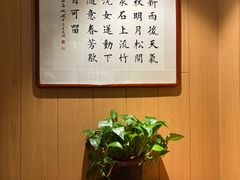 新雨後天氣
秋明月松間
泉石上流竹
浣女蓮動下
隨意春芳歇
自可留